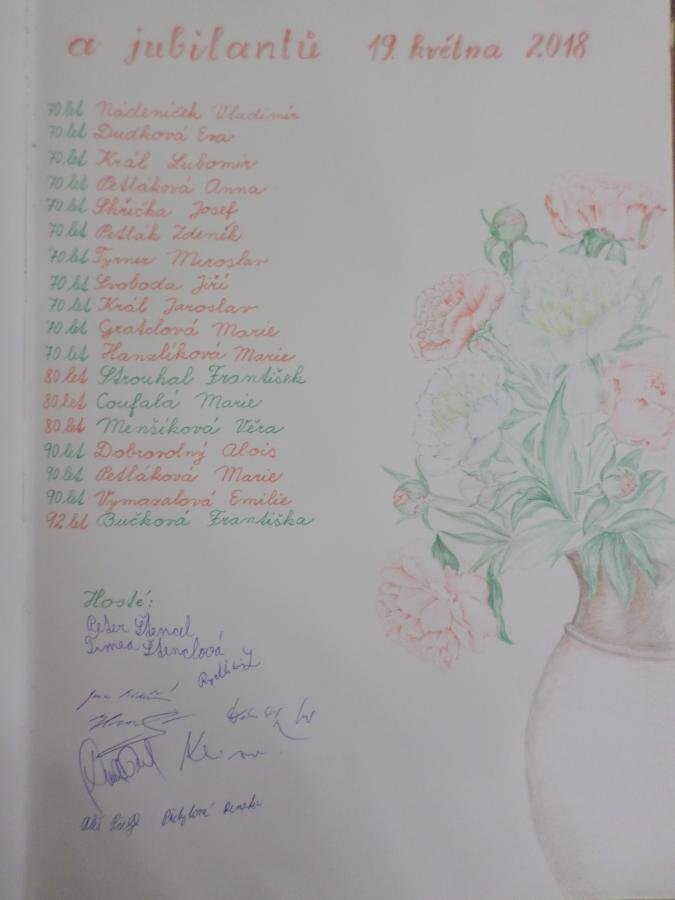 a jubilantů 19. května 2018
70 let Nádeníček Vladimír
70 let Dudková Eva
70 let Král Lubomír
70 let Petláková Anna
70 let Skřička Josef
70 let Petlák Zdeněk
70 let Tyrner Miroslav
70 let Svoboda Jiří
70 let Král Jaroslav
70 let Gratclová Marie
70 let Hanzlíková Marie
80 let Strouhal František
80 let Coufalá Marie
80 let Menšíková Věra
90 let Dobrovolný Alois
90 let Petláková Marie
90 let Vymazalová Emilie
92 let Bučková Františka
Hosté:
Peter Štencel
Timea Štenclová